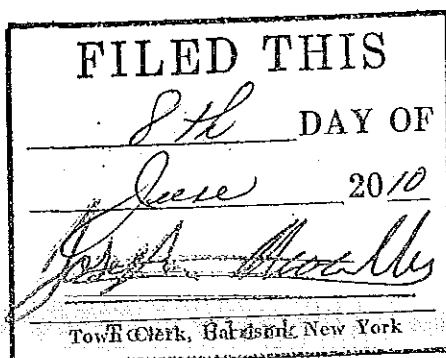 FILED THIS
8th DAY OF
June 2010
Joseph
Town Clerk, Harrison, New York